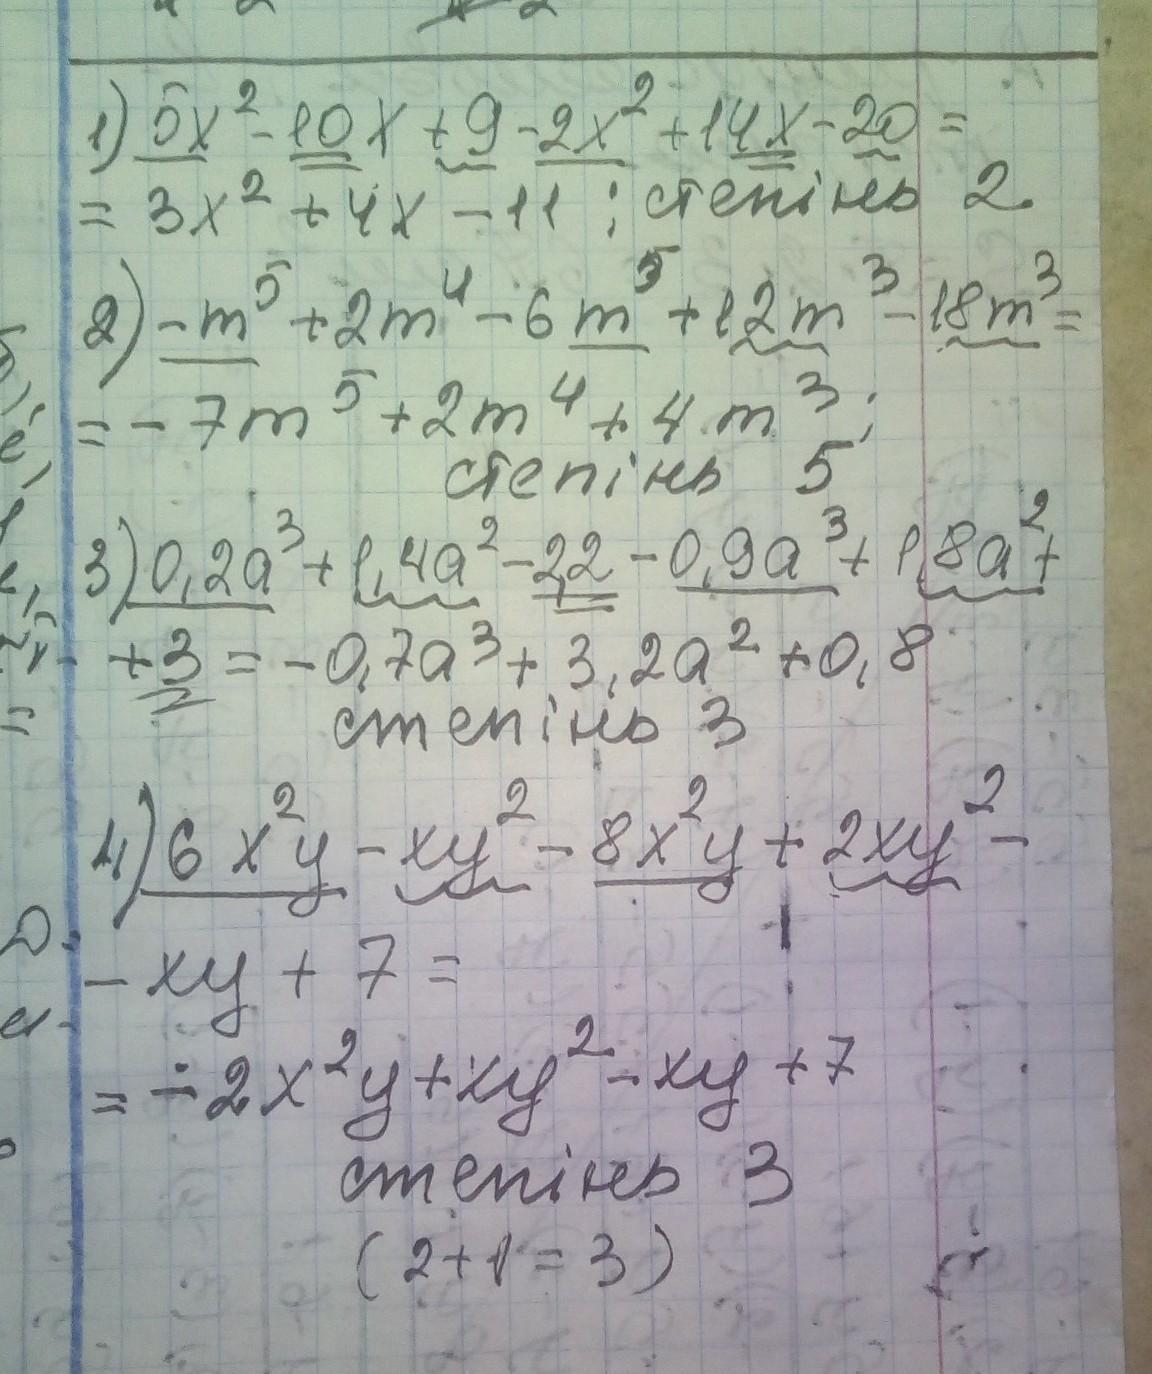 1) 5x² - 10x + 9 - 2x² + 14x - 20 =
= 3x² + 4x - 11 ; степінь 2
2) - m⁵ + 2m⁴ - 6m⁵ + 12m³ - 18m³ =
= - 7m⁵ + 2m⁴ + 4m³ ;
степінь 5
3) 0,2a³ + 1,4a² - 2,2 - 0,9a³ + 1,8a² +
+ 3 = - 0,7a³ + 3,2a² + 0,8
степінь 3
4) 6x²y - xy² - 8x²y + 2xy² -
- xy + 7 =
= - 2x²y + xy² - xy + 7
степінь 3
(2 + 1 = 3)